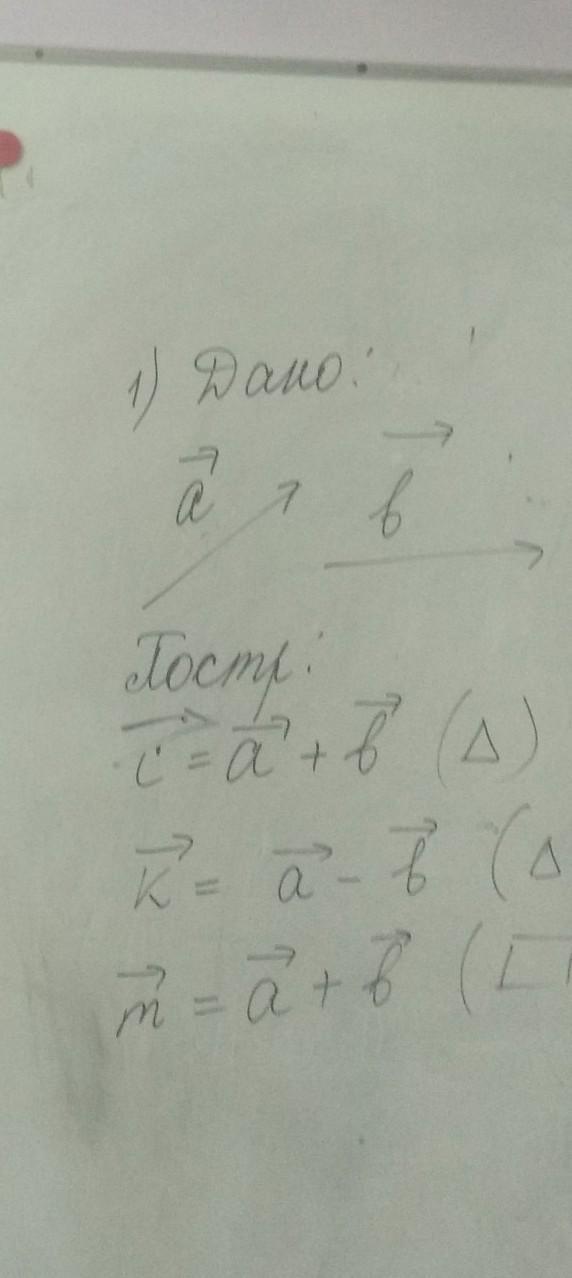 1) Дано:
a⃗ b⃗
Постр:
c⃗ = a⃗ + b⃗ (Δ)
k⃗ = a⃗ - b⃗ (Δ
m⃗ = a⃗ + b⃗ (